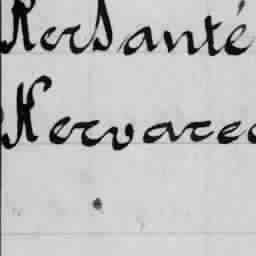 KerSanté
Kervarec